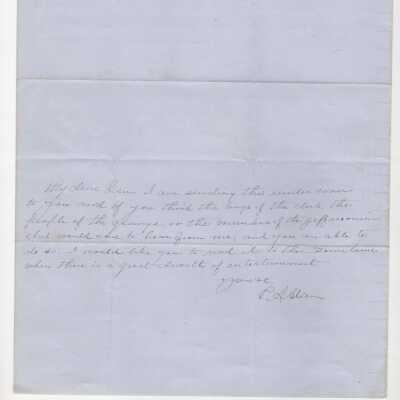 My Dear Dun I am sending this under cover
to you and if you think the boys of the club the
people of the grange or the members of the
club would care to hear from me, and you are able to
do so I would like you to read it to them sometime
when there is a great dearth of entertainment
Yours